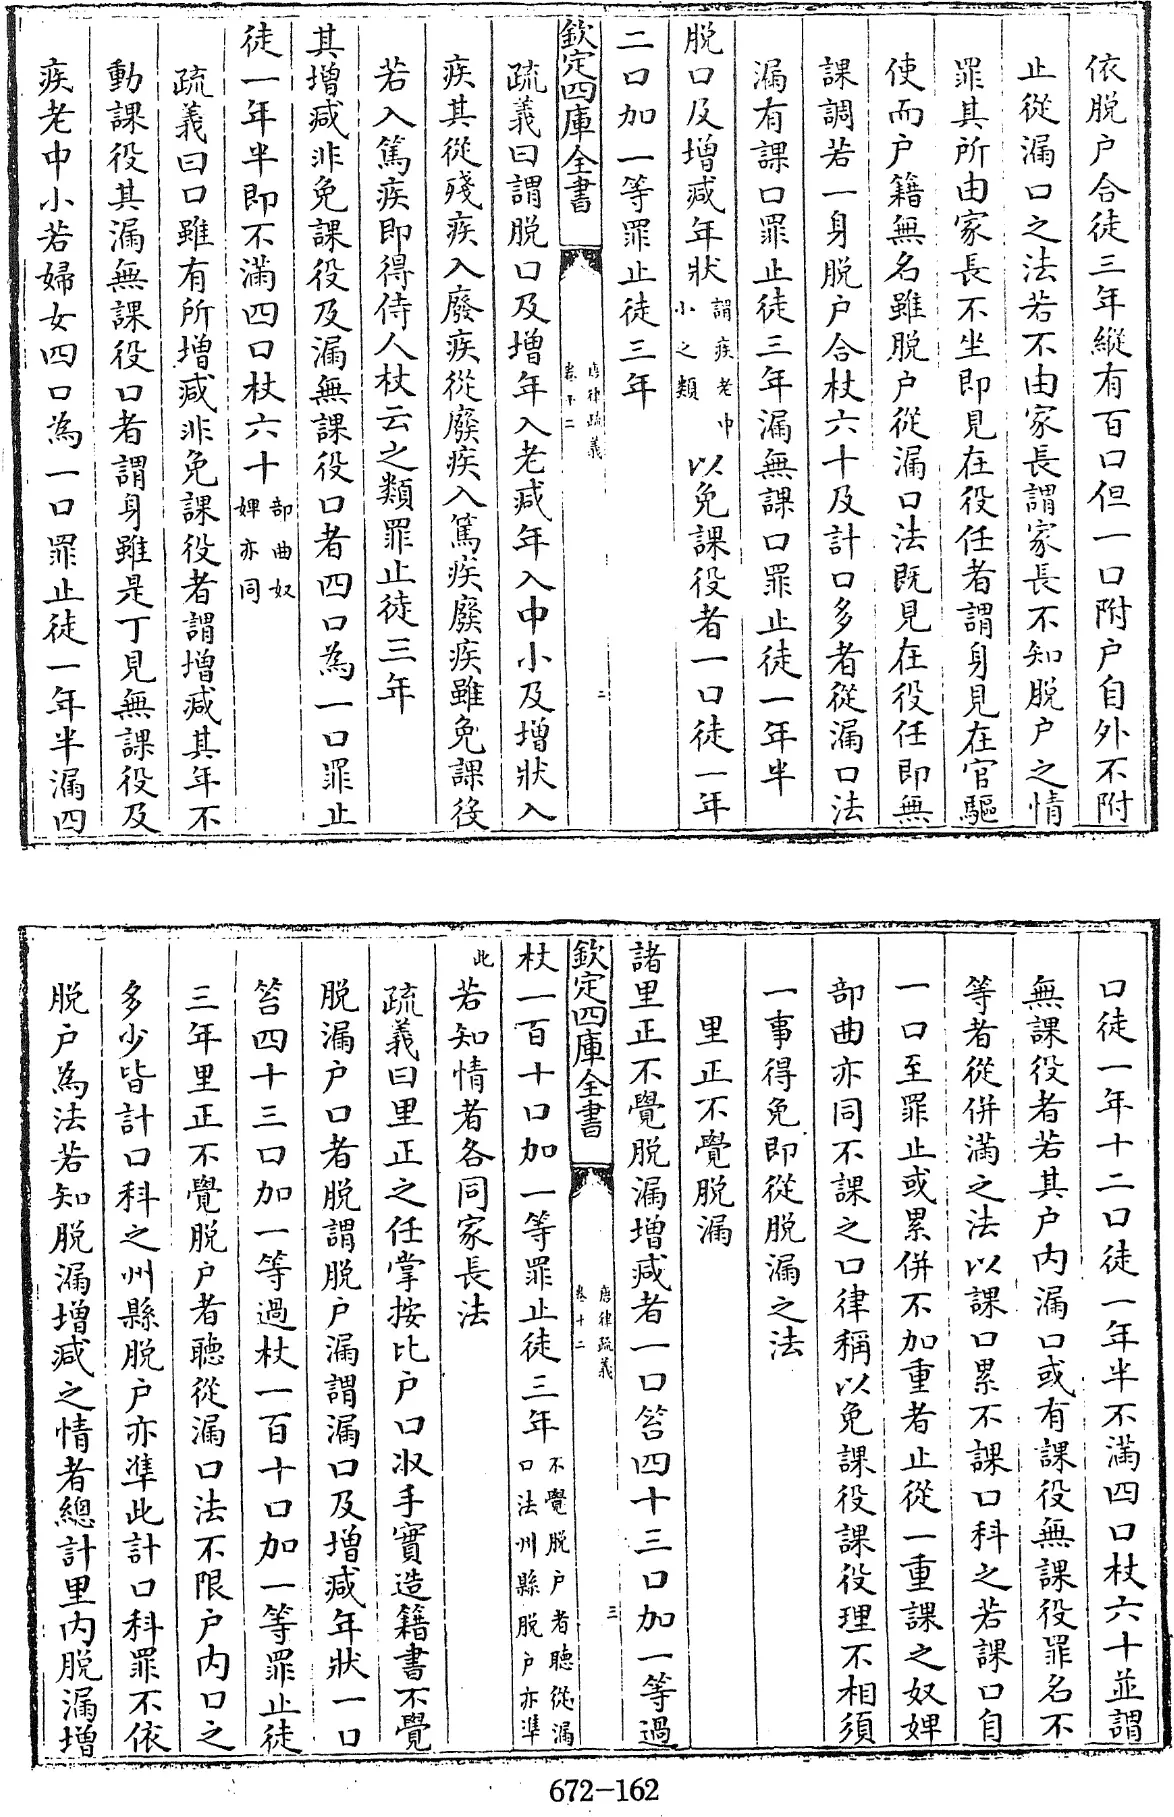 依脱户合徒三年縱有百口但一口附户自外不附
止從漏口之法若不由家長謂家長不知脱户之情
罪其所由家長不坐即見在役任者謂身見在官驅
使而户籍無名雖脱户從漏口法既見在役任即無
課調若一身脱户合杖六十及計口多者從漏口法
漏有課口罪止徒三年漏無課口罪止徒一年半
脱口及增減年狀謂疾老中小之類以免課役者一口徒一年
二口加一等罪止徒三年
欽定四庫全書
唐律疏義
卷十二
二
疏義曰謂脱口及增年入老減年入中小及增狀入
疾其從殘疾入廢疾從廢疾入篤疾廢疾雖免課役
若入篤疾即得侍人杖云之類罪止徒三年
其增減非免課役及漏無課役口者四口為一口罪止
徒一年半即不滿四口杖六十部曲奴婢亦同
疏義曰口雖有所增減非免課役者謂增減其年不
動課役其漏無課役口者謂身雖是丁見無課役及
疾老中小若婦女四口為一口罪止徒一年半漏四
口徒一年十二口徒一年半不滿四口杖六十並謂
無課役者若其户内漏口或有課役無課役罪名不
等者從併滿之法以課口累不課口科之若課口自
一口至罪止或累併不加重者止從一重課之奴婢
部曲亦同不課之口律稱以免課役課役理不相須
一事得免即從脱漏之法
里正不覺脱漏
諸里正不覺脱漏增減者一口笞四十三口加一等過
欽定四庫全書
唐律疏義
卷十二
三
杖一百十口加一等罪止徒三年不覺脱户者聽從漏口法州縣脱户亦準
此若知情者各同家長法
疏義曰里正之任掌按比户口收手實造籍書不覺
脱漏户口者脱謂脱户漏謂漏口及增減年狀一口
笞四十三口加一等過杖一百十口加一等罪止徒
三年里正不覺脱户者聽從漏口法不限户内口之
多少皆計口科之州縣脱户亦準此計口科罪不依
脱户為法若知脱漏增減之情者總計里内脱漏增
672-162